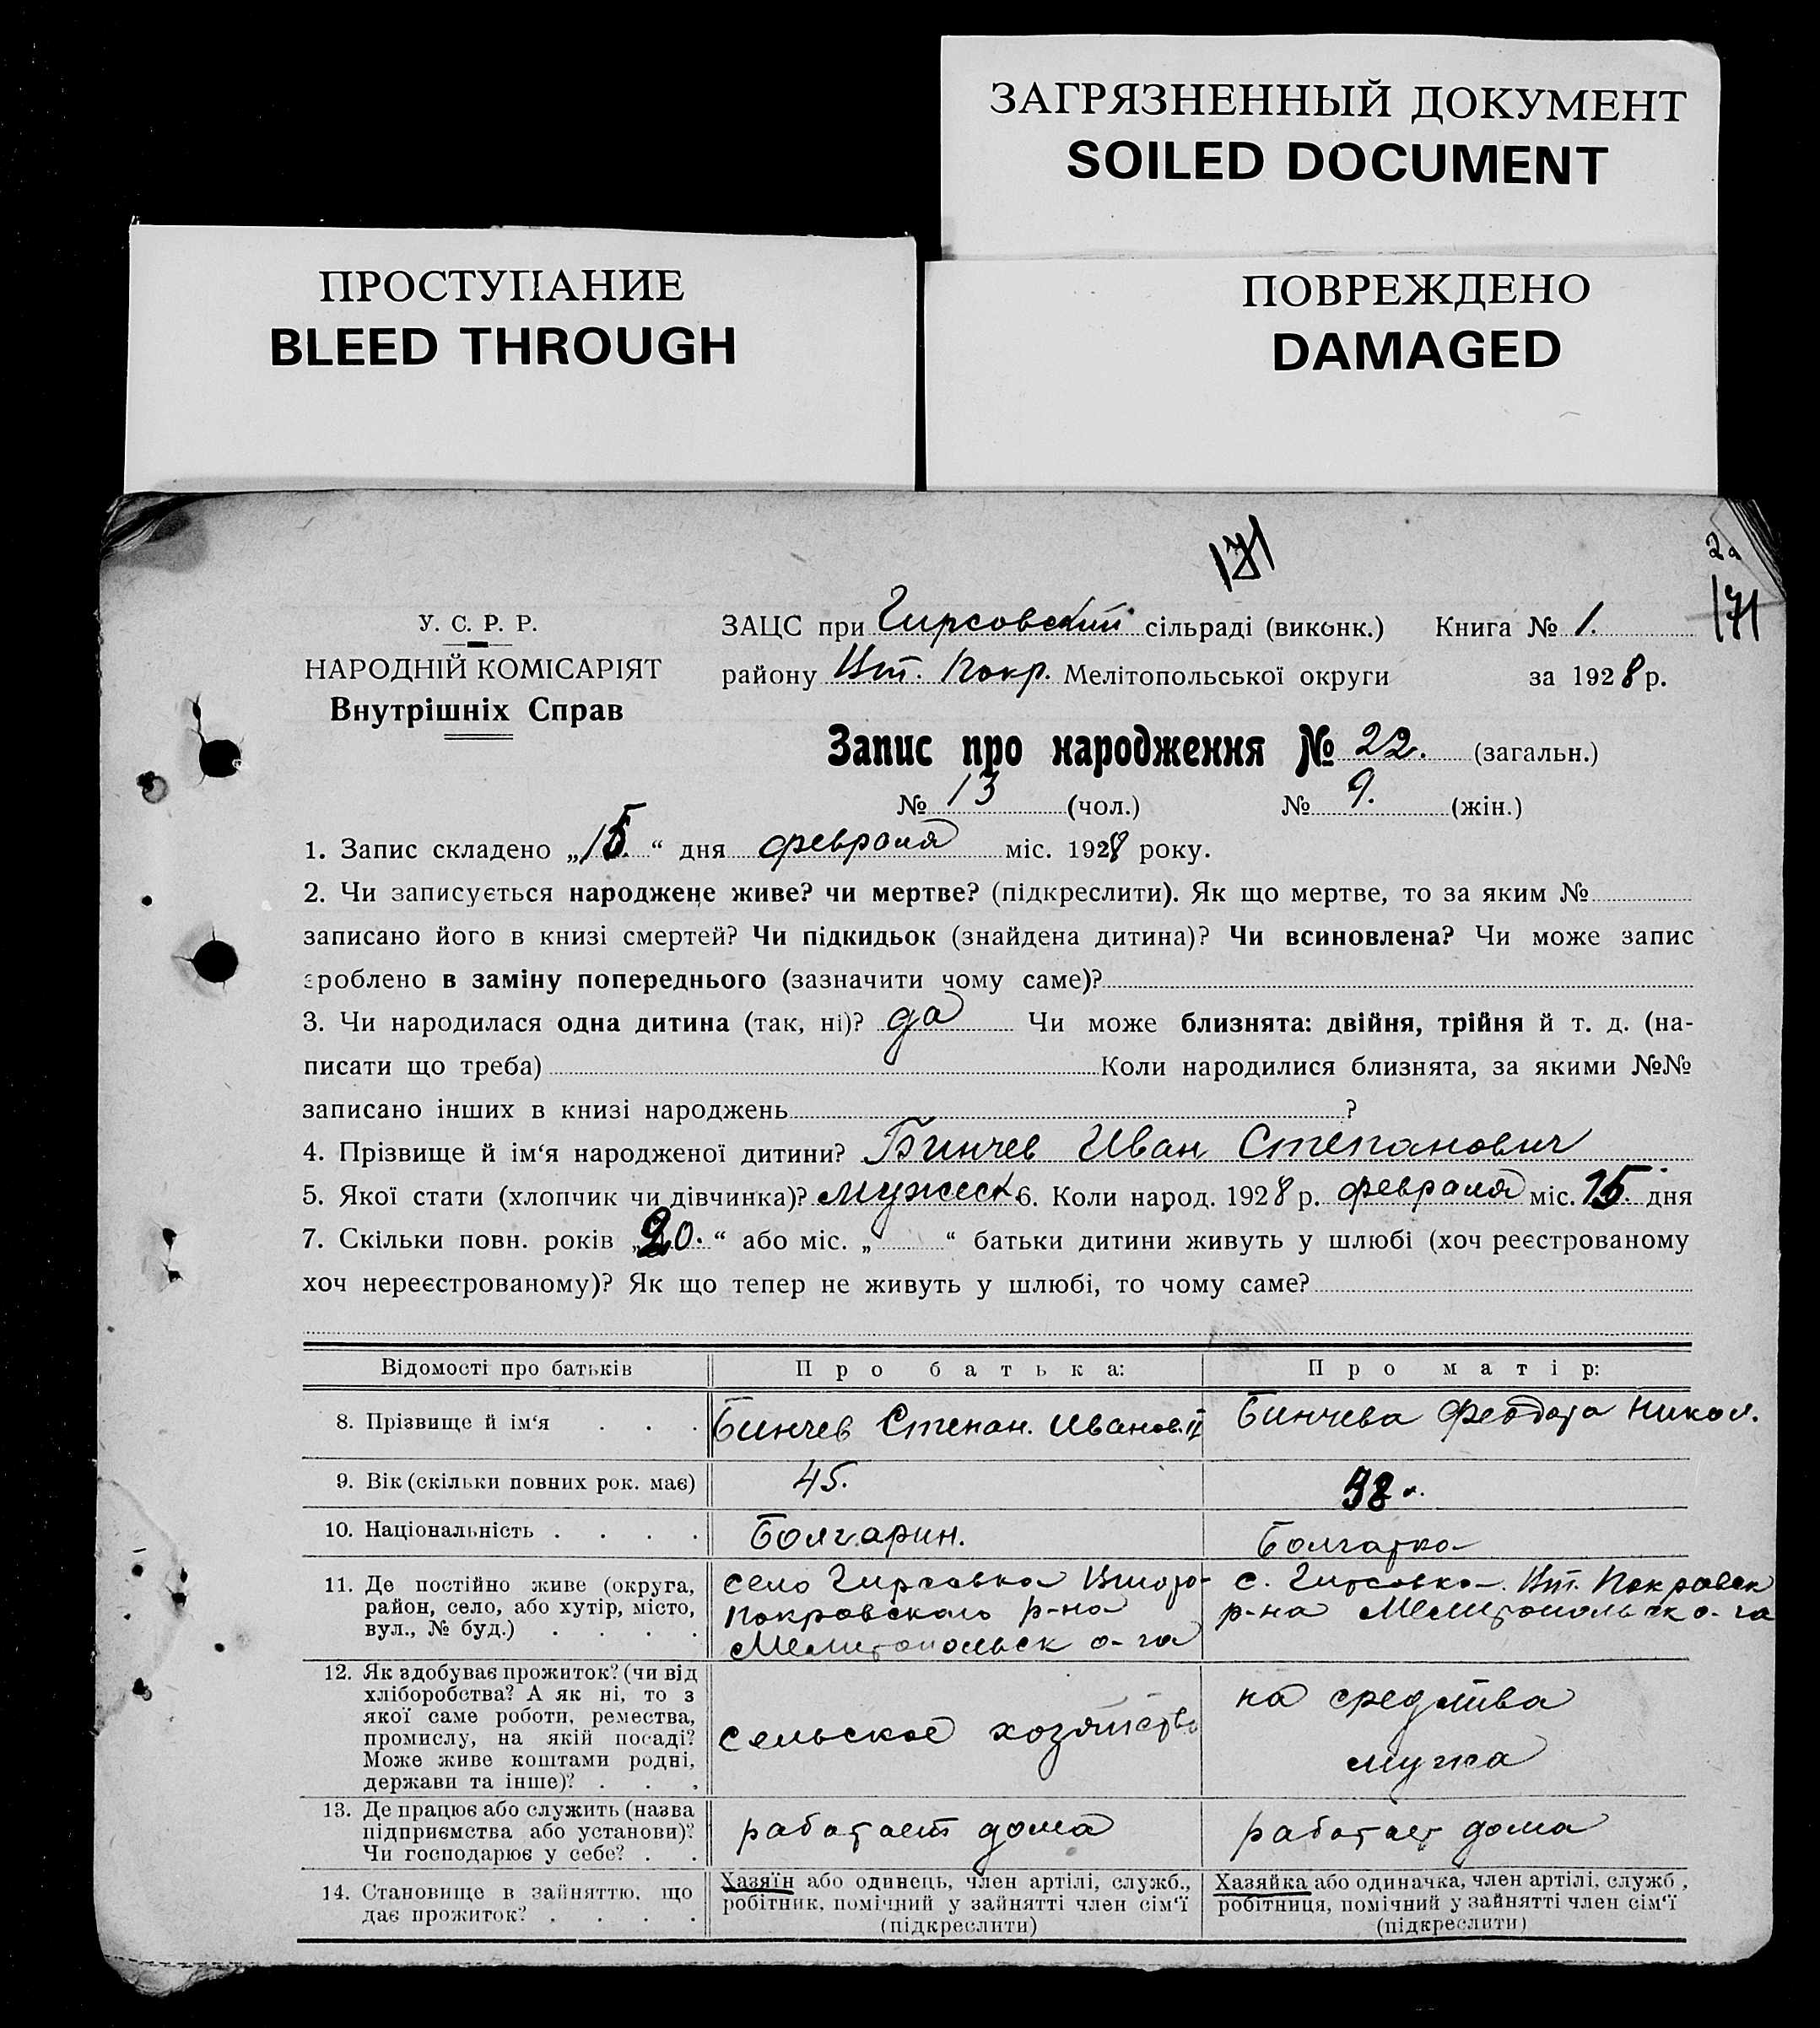 ЗАГРЯЗНЕННЫЙ ДОКУМЕНТ
SOILED DOCUMENT
ПРОСТУПАНИЕ
BLEED THROUGH
ПОВРЕЖДЕНО
DAMAGED
171
171
У. С. Р. Р.
НАРОДНІЙ КОМІСАРІЯТ
Внутрішніх Справ
ЗАЦС при Гирсовский сільраді (виконк.) Книга № 1.
району Вт. Покр. Мелітопольської округи за 1928 р.
Запис про народження № 22. (загальн.)
№ 13 (чол.) № 9. (жін.)
1. Запис складено „15.“ дня февраля міс. 1928 року.
2. Чи записується народжене живе? чи мертве? (підкреслити). Як що мертве, то за яким №
записано його в книзі смертей? Чи підкидьок (знайдена дитина)? Чи всиновлена? Чи може запис
зроблено в заміну попереднього (зазначити чому саме)?
3. Чи народилася одна дитина (так, ні)? да Чи може близнята: двійня, трійня й т. д. (на-
писати що треба) Коли народилися близнята, за якими №№
записано інших в книзі народжень ?
4. Прізвище й ім‘я народженої дитини? Бинчев Иван Степанович
5. Якої стати (хлопчик чи дівчинка)? мужеск. 6. Коли народ. 1928 р. февраля міс. 15. дня
7. Скільки повн. років „20.“ або міс. „ “ батьки дитини живуть у шлюбі (хоч реєстрованому
хоч нереєстрованому)? Як що тепер не живуть у шлюбі, то чому саме?
Відомості про батьків Про батька: Про матір:
8. Прізвище й ім‘я . . . Бинчев Степан. Иванов. Бинчева Феодора Никол.
9. Вік (скільки повних рок. має) 45. 38.
10. Національність . . . . Болгарин. Болгарка
11. Де постійно живе (округа,
район, село, або хутір, місто,
вул., № буд.) . . . .
село Гирсовка Второ-
покровского р-на
Мелитопольск о-га
с. Гирсовка. Вт. Покровск
р-на Мелитопольск о-га
12. Як здобуває прожиток? (чи від
хліборобства? А як ні, то з
якої саме роботи, ремества,
промислу, на якій посаді?
Може живе коштами родні,
держави та інше)? . . .
сельское хозяйство
на средства
мужа
13. Де працює або служить (назва
підприємства або установи)?
Чи господарює у себе? . .
работает дома
работает дома
14. Становище в зайняттю, що
дає прожиток? . . . .
Хазяїн або одинець, член артілі, служб.,
робітник, помічний у зайнятті член сім‘ї
(підкреслити)
Хазяйка або одиначка, член артілі, служб.,
робітниця, помічний у зайнятті член сім‘ї
(підкреслити)